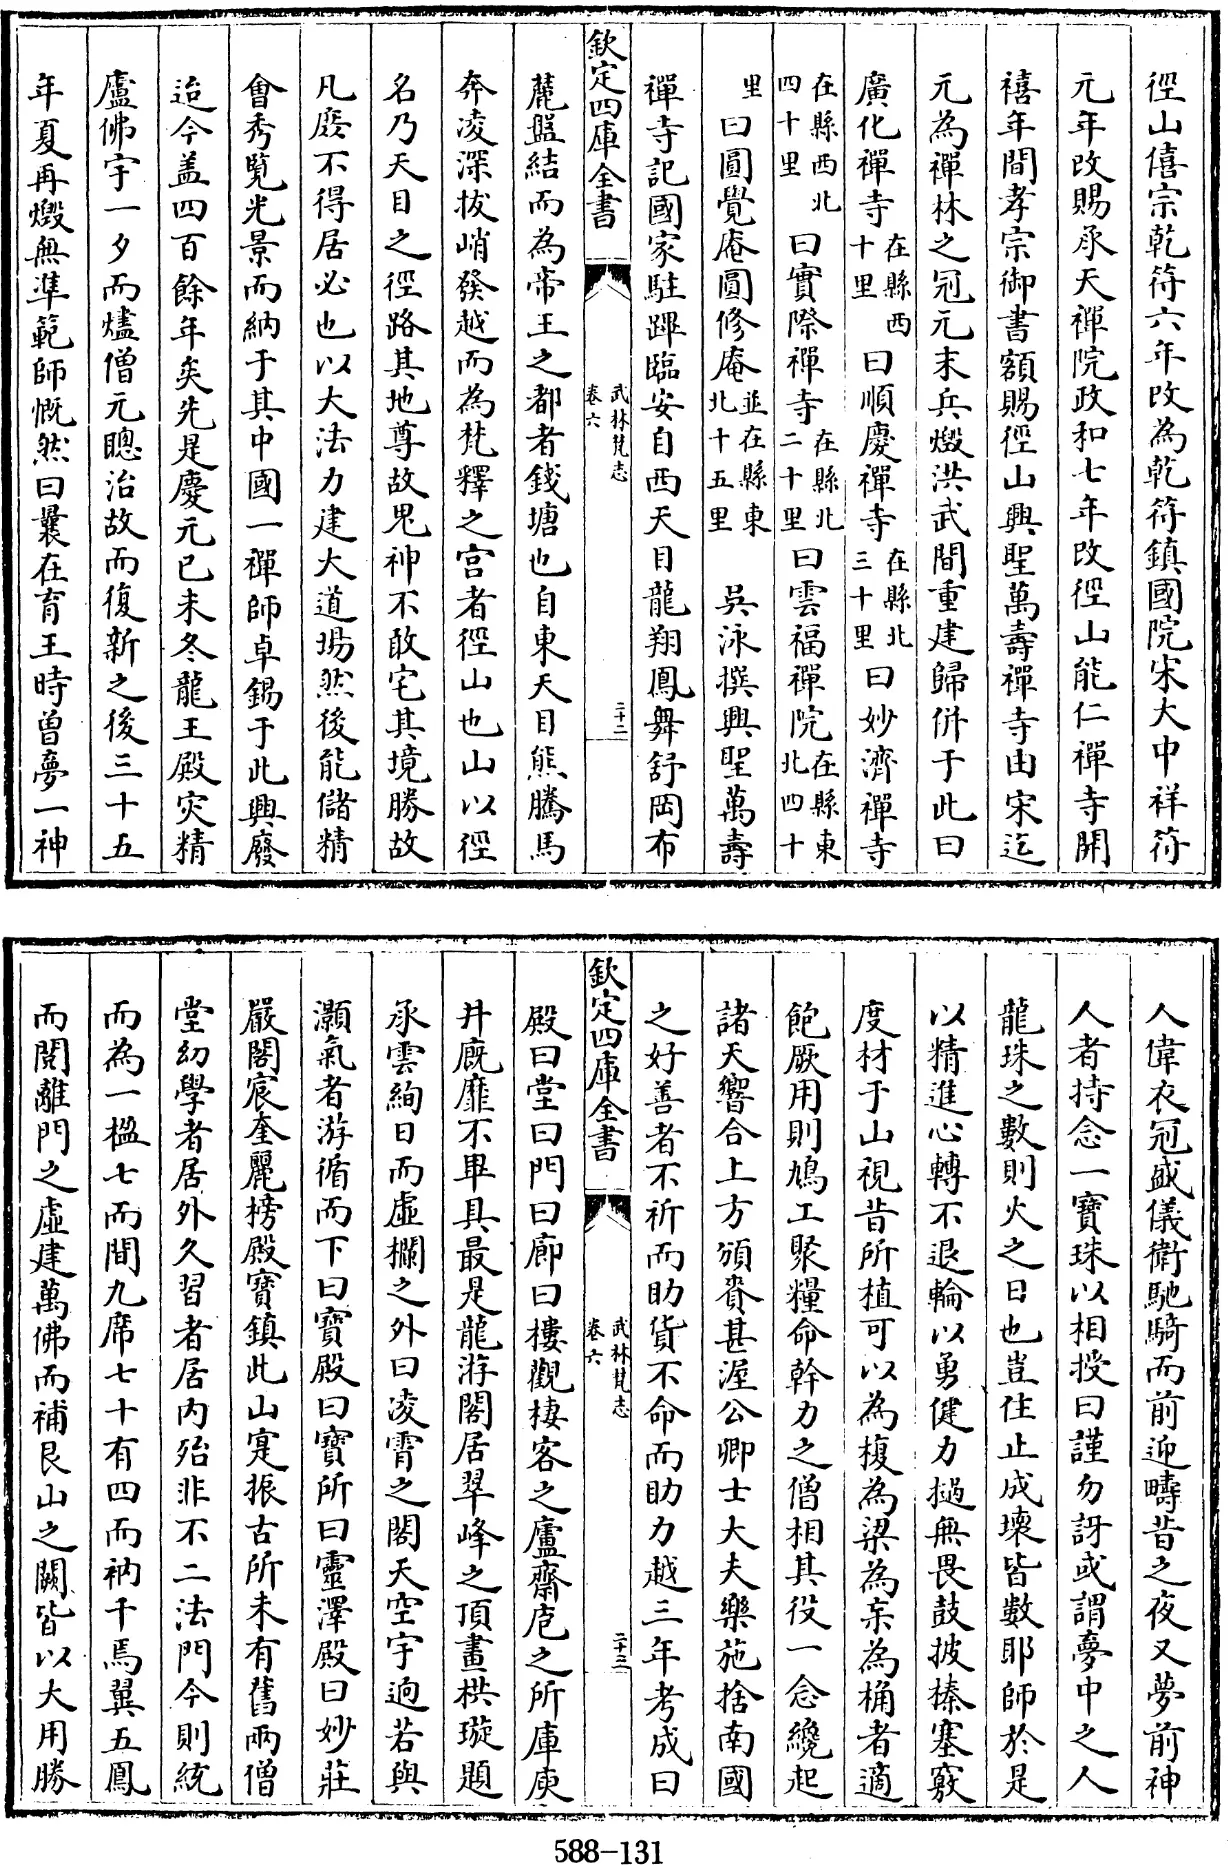 徑山僖宗乾符六年改為乾符鎮國院宋大中祥符
元年改賜承天禪院政和七年改徑山能仁禪寺開
禧年間孝宗御書額賜徑山興聖萬壽禪寺由宋迄
元為禪林之冠元末兵燬洪武間重建歸併于此曰
廣化禪寺在縣西十里曰順慶禪寺在縣北三十里曰妙濟禪寺
在縣西北四十里曰實際禪寺在縣北二十里曰雲福禪院在縣東北四十
里曰圓覺庵圓修庵並在縣東北十五里吳泳撰興聖萬壽
禪寺記國家駐蹕臨安自西天目龍翔鳳舞舒岡布
欽定四庫全書 武林梵志卷六 二十二
麓盤結而為帝王之都者錢塘也自東天目熊騰馬
奔凌深拔峭發越而為梵釋之宮者徑山也山以徑
名乃天目之徑路其地尊故鬼神不敢宅其境勝故
凡廢不得居必也以大法力建大道場然後能儲精
會秀覽光景而納于其中國一禪師卓錫于此興廢
迨今蓋四百餘年矣先是慶元己未冬龍王殿災精
廬佛宇一夕而燼僧元聰治故而復新之後三十五
年夏再燬無準範師慨然曰曩在育王時曾夢一神
人偉衣冠盛儀衛馳騎而前迎疇昔之夜又夢前神
人者持念一寶珠以相授曰謹勿訝或謂夢中之人
龍珠之數則火之日也豈住止成壞皆數耶師於是
以精進心轉不退輪以勇健力撾無畏鼓披榛塞竅
度材于山視昔所植可以為榱為梁為杗為桷者適
飽厥用則鳩工聚糧命幹力之僧相其役一念纔起
諸天響合上方頒賚甚渥公卿士大夫樂施捨南國
之好善者不祈而助貨不命而助力越三年考成曰
欽定四庫全書 武林梵志卷六 二十三
殿曰堂曰門曰廊曰樓觀棲客之廬齋庖之所庫庾
井廐靡不畢具最是龍游閣居翠峰之頂畫栱璇題
承雲絢日而虛欄之外曰凌霄之閣天空宇迥若與
灝氣者游循而下曰寶殿曰寶所曰靈澤殿曰妙莊
嚴閣宸奎麗榜殿寶鎮此山寔振古所未有舊兩僧
堂幼學者居外久習者居內殆非不二法門今則統
而為一楹七而間九席七十有四而衲千焉翼五鳳
而閱離門之虛建萬佛而補艮山之闕皆以大用勝
588-131